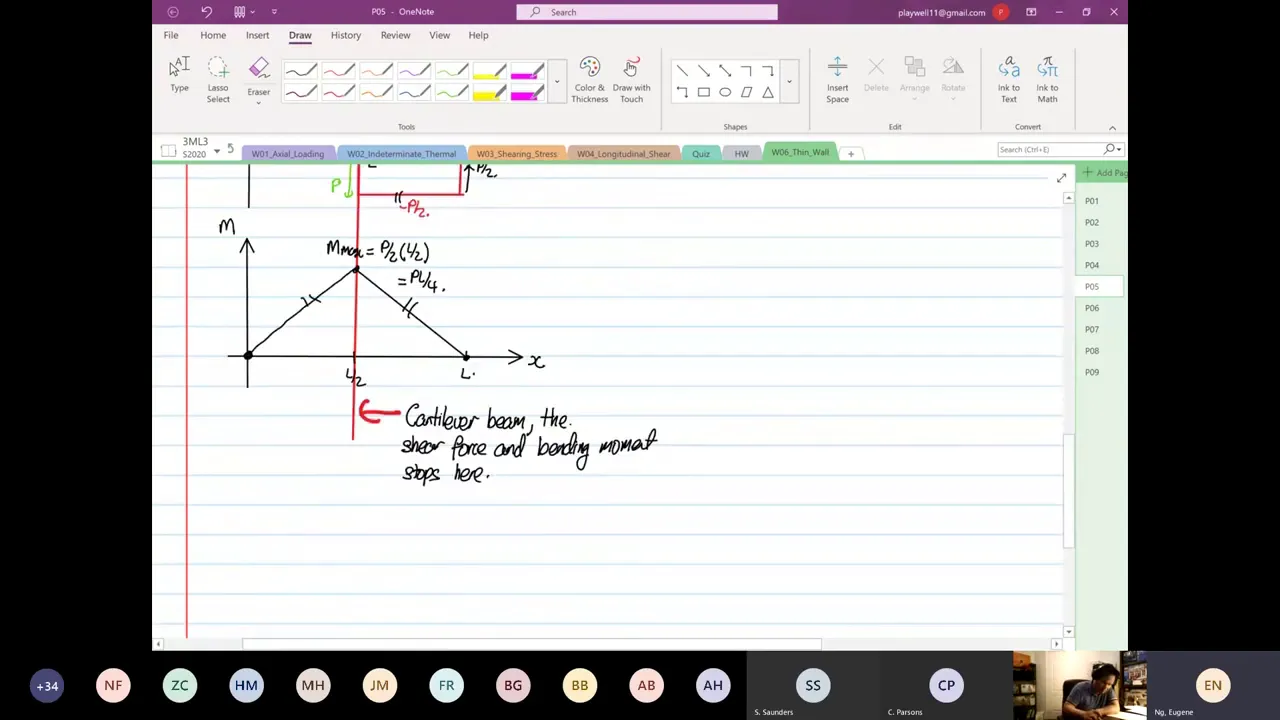 P05 - OneNote
Search
playwell11@gmail.com
P
File Home Insert Draw History Review View Help
Type
Lasso Select
Eraser
Color & Thickness
Draw with Touch
Insert Space
Delete
Arrange
Rotate
Ink to Text
Ink to Math
Tools
Shapes
Edit
Convert
3ML3 S2020
5
W01_Axial_Loading
W02_Indeterminate_Thermal
W03_Shearing_Stress
W04_Longitudinal_Shear
Quiz
HW
W06_Thin_Wall
Search (Ctrl+E)
Add Pag
P01
P02
P03
P04
P05
P06
P07
P08
P09
P
P/2.
-P/2.
M
Mmax = P/2 (L/2)
= PL/4.
x
L/2
L.
Cantilever beam, the.
shear force and bending moment
stops here.
+34 NF ZC HM MH JM FR BG BB AB AH SS CP EN
S. Saunders
C. Parsons
Ng, Eugene